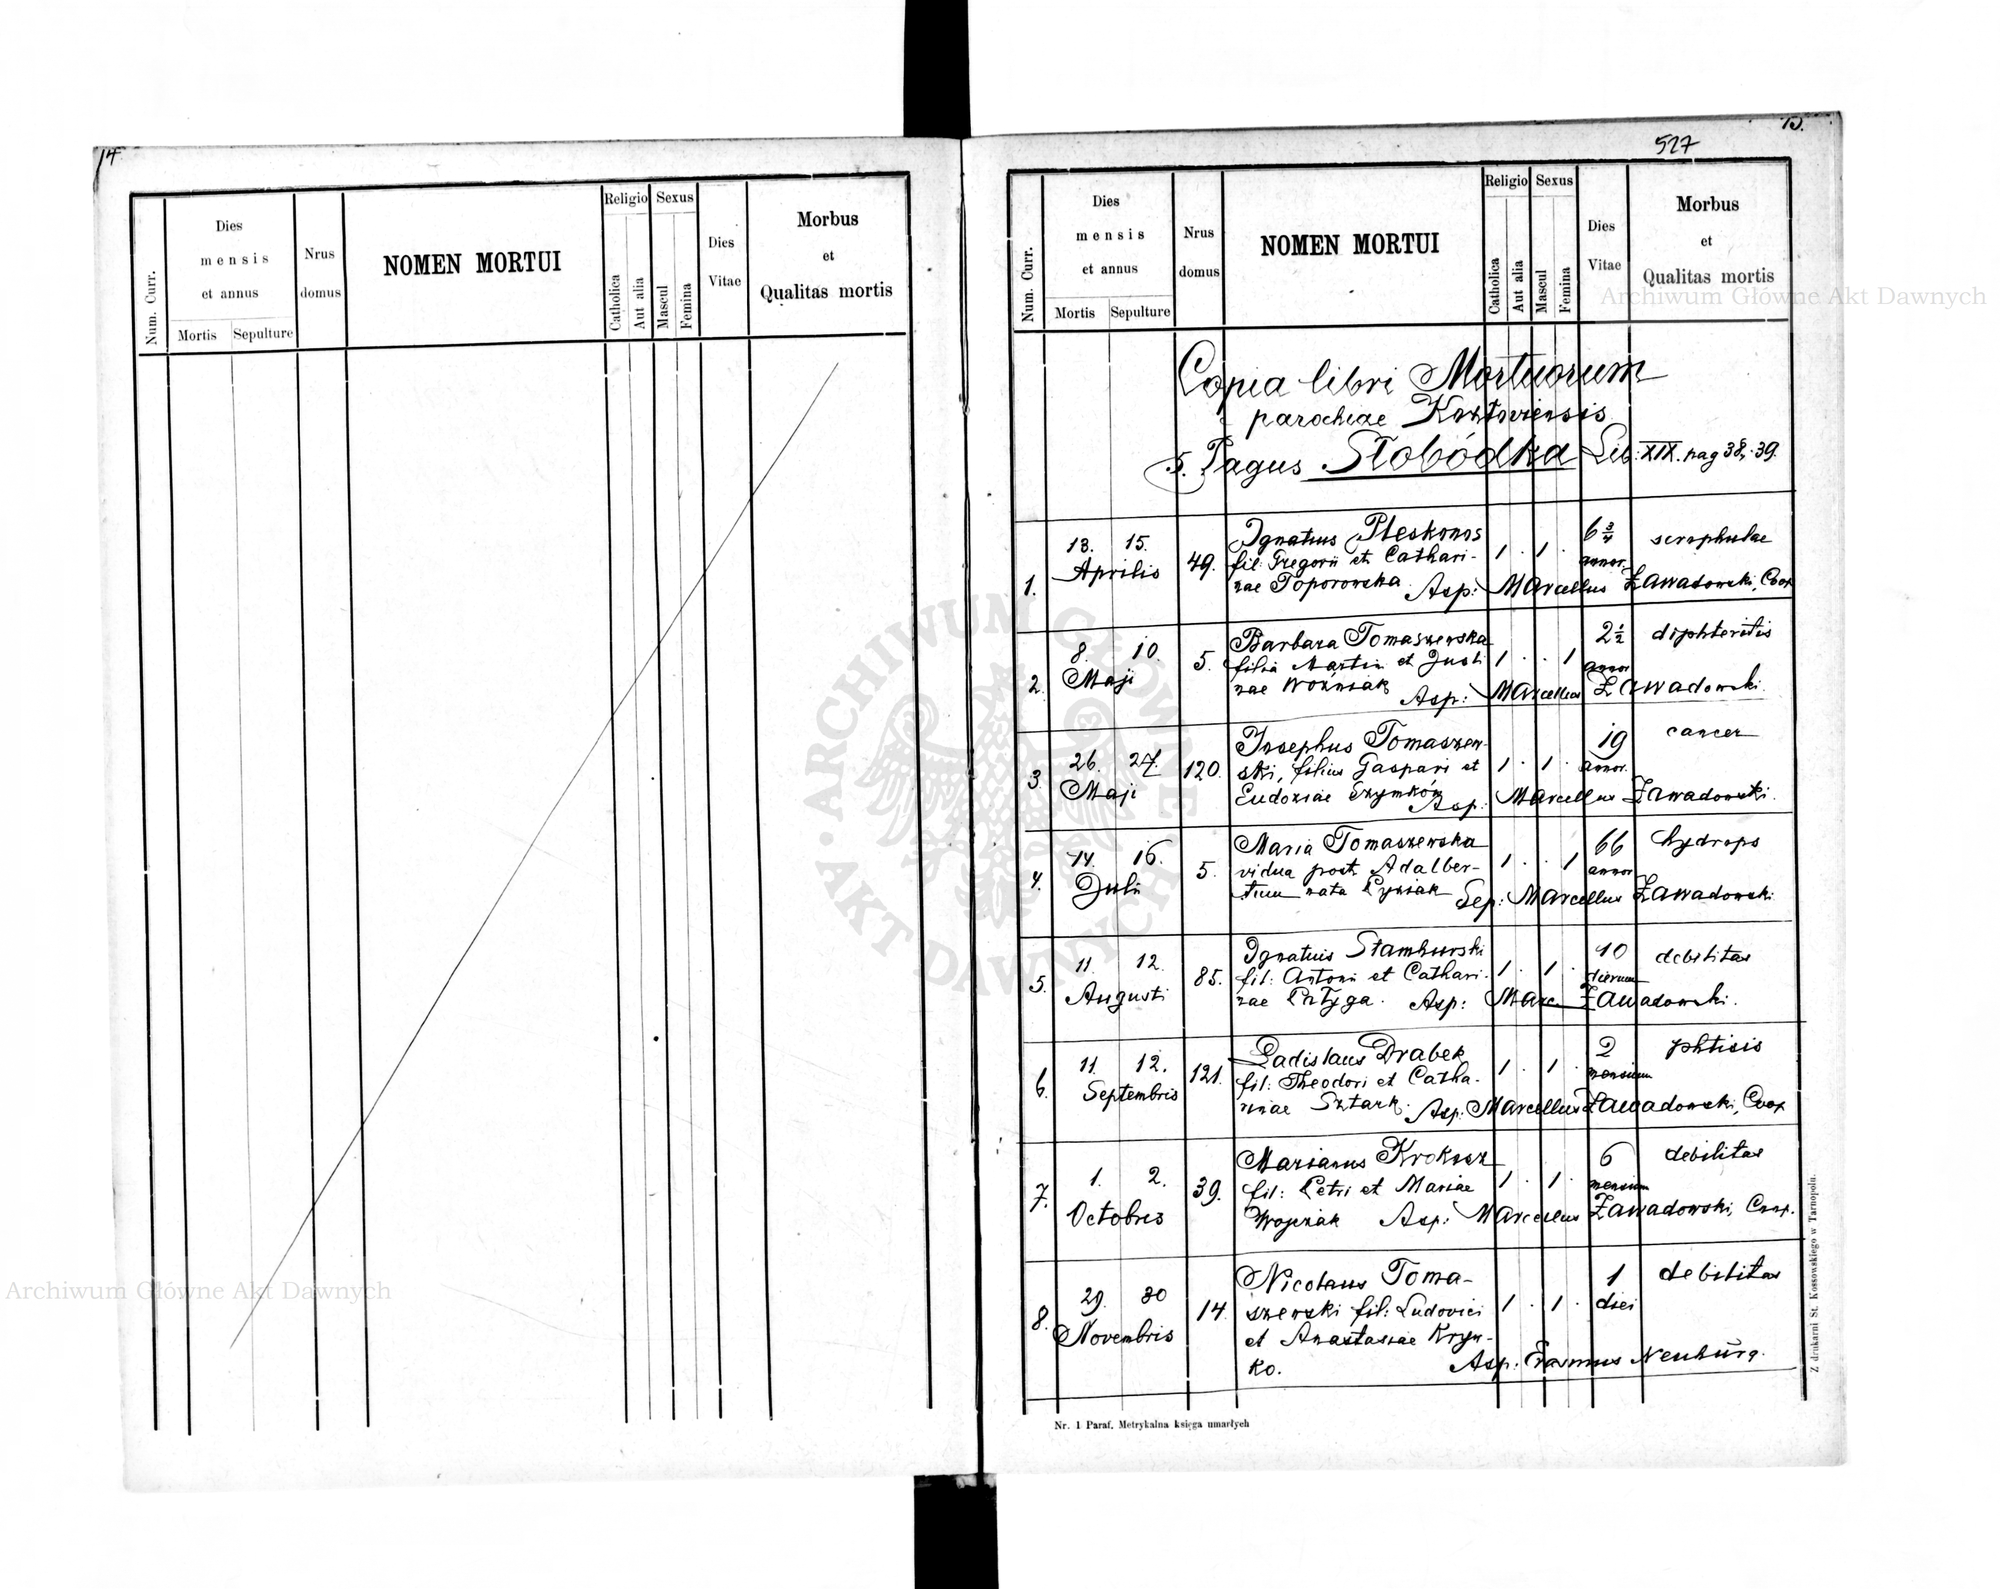 14
Num. Curr.
Dies
mensis
et annus
Mortis
Sepulture
Nrus
domus
NOMEN MORTUI
Religio
Catholica
Aut alia
Sexus
Mascul
Femina
Dies
Vitae
Morbus
et
Qualitas mortis
15.
527
Num. Curr.
Dies
mensis
et annus
Mortis
Sepulture
Nrus
domus
NOMEN MORTUI
Religio
Catholica
Aut alia
Sexus
Mascul
Femina
Dies
Vitae
Morbus
et
Qualitas mortis
Copia libri Mortuorum
parochiae
5. Pagus Słobódka Lib: XIX. pag 38, 39.
1.
13. 15.
Aprilis
49.
Ignatius Pleskonos
fil: Gregorii et Cathari-
nae Toporowska. Asp: Marcellus Zawadowski, Coop
1 . 1 .
6 3/4
annor.
scrophulae
2.
8. 10.
Maji
5.
Barbara Tomaszewska
filia Martin et Justi
nae Woźniak Asp: Marcellus Zawadowski.
1 . . 1
2 1/2
annor
diphteritis
3.
26. 27.
Maji
120.
Josephus Tomaszew-
ski, filius Gaspari et
Eudoxiae Szymków Asp: Marcellus Zawadowski.
1 . 1 .
19
annor.
cancer
4.
14. 16.
Julii
5.
Maria Tomaszewska
vidua post Adalber-
tum nata Sep: Marcellus Zawadowski
1 . . 1
66
annor
hydrops
5.
11. 12.
Augusti
85.
Ignatius Stamburski
fil: Antoni et Cathari-
nae Asp: Marc. Zawadowski.
1 . 1 .
10
dierum
debilitas
6.
11. 12.
Septembris
121.
Ladislaus Drabek
fil: Theodori et Catha-
rinae Sztark. Asp: Marcellus Zawadowski, Coop
1 . 1 .
2
mensium
phtisis
7.
1. 2.
Octobris
39.
Marianus Kroksz
fil: Petri et Mariae
Wojciak Asp: Marcellus Zawadowski, Coop.
1 . 1 .
6
mensium
debilitas
8.
29. 30
Novembris
14.
Nicolaus Toma-
szewski fil: Ludovici
et Anastasiae Kryw-
ko. Asp. Erasmus Neuburg.
1 . 1 .
1
diei
debilitas
Nr. 1 Paraf. Metrykalna księga umarłych
Z drukarni St. Kossowskiego w Tarnopolu.
Archiwum Główne Akt Dawnych
Archiwum Główne Akt Dawnych
ARCHIWUM GŁÓWNE · AKT DAWNYCH ·